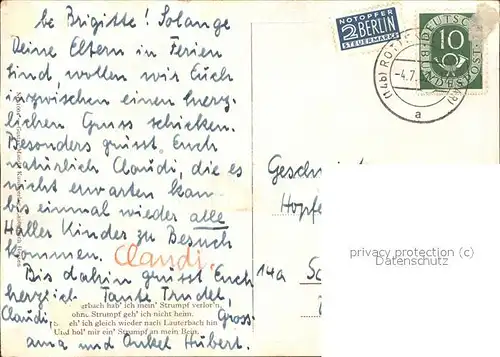 be Brigitte! Solange
Deine Eltern in Ferien
sind, wollen wir Euch
inzwischen einen herz-
lichen Gruss schicken.
Besonders grüsst Euch
natürlich Claudi, die es
nicht erwarten kann
bis einmal wieder alle
Haller Kinder zu Besuch
kommen. Claudi.
Bis dahin grüsst Euch
herzlich Tante Trudel,
Claudi, Gross-
ama und Onkel Hubert.
erbach hab' ich mein' Strumpf verlor'n,
ohne Strumpf geh' ich nicht heim.
eh' ich gleich wieder nach Lauterbach hin
Und hol' mir ein' Strumpf an mein Bein.
NOTOPFER
2 BERLIN
STEUERMARKE
DEUTSCHE
BUNDESPOST
10
(14b) ROTT
-4.7.
a
Hopfe
14a
privacy protection (c)
Datenschutz